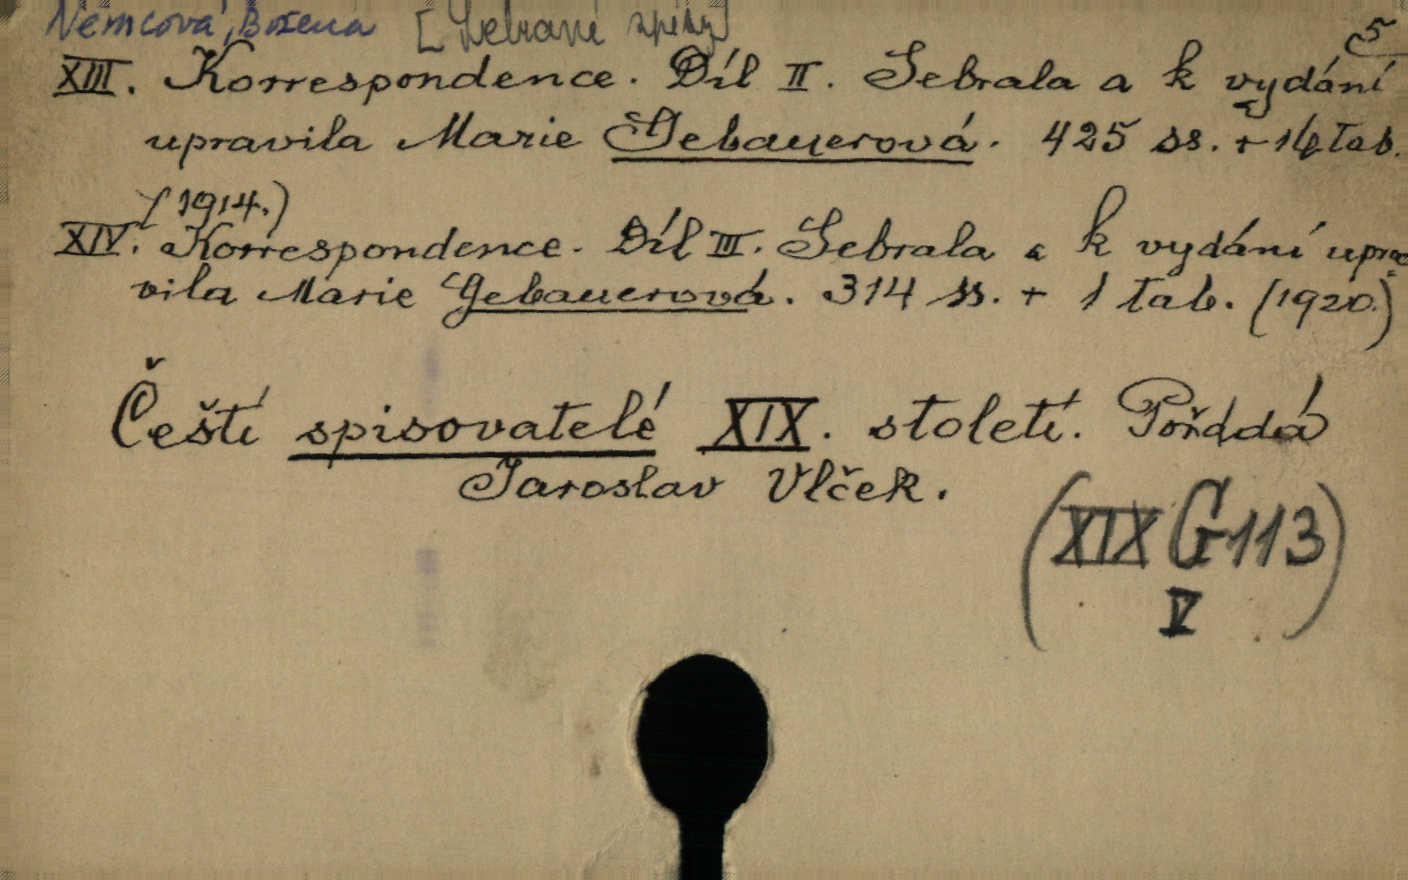 Němcová, Božena [Sebrané spisy] 5
XIII. Korrespondence. Díl II. Sebrala a k vydání
upravila Marie Gebauerová. 425 ss. + 14 tab.
(1914.)
XIV. Korrespondence. Díl III. Sebrala a k vydání upra-
vila Marie Gebauerová. 314 ss. + 1 tab. (1920.)
Čeští spisovatelé XIX. století. Pořádá
Jaroslav Vlček.
(XIX G 113)
V